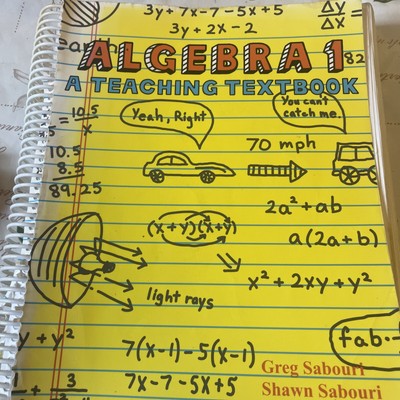 3y+7x-7-5x+5
3y+2x-2
Δy
Δx
=
ALGEBRA 1
82
A TEACHING TEXTBOOK
10.5
x
=
Yeah, Right
You can't
catch me.
70 mph
10.5
8.5
89.25
2a²+ab
(x+y)(x+y)
a(2a+b)
x²+2xy+y²
light rays
y+y²
7(x-1)-5(x-1)
7x-7-5x+5
fab.
Greg Sabouri
Shawn Sabouri
1
+
3